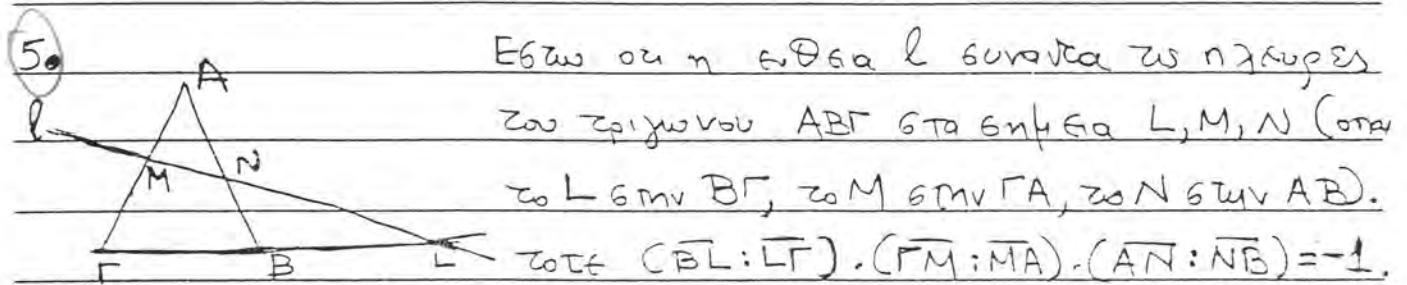 5.
Εστω οτι η ευθεια l συναντα τις πλευρες
του τριγωνου ΑΒΓ στα σημεια L, M, N (οπου
το L στην ΒΓ, το Μ στην ΓΑ, το Ν στην ΑΒ).
τοτε (BL:LΓ).(ΓΜ:ΜΑ).(ΑΝ:ΝΒ)=-1.
A
l
M N
Γ B L